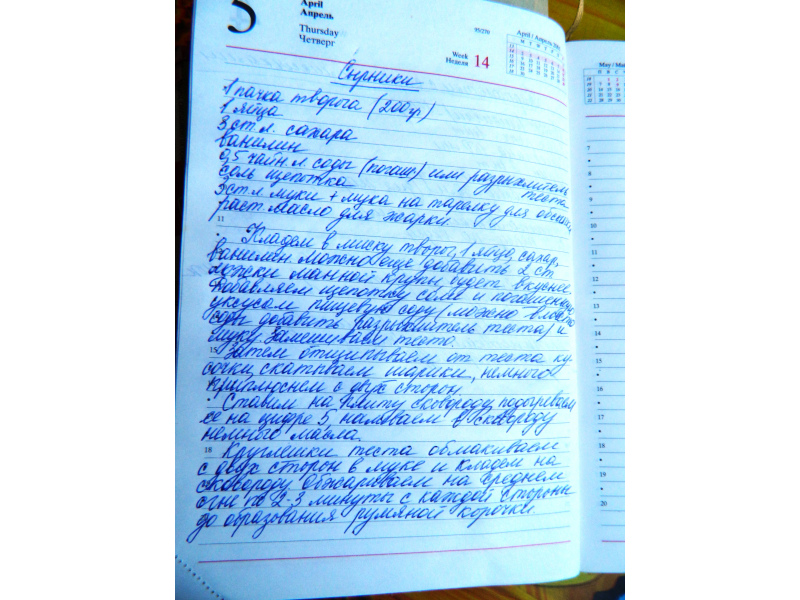 5
April
Апрель
Thursday
Четверг
95/270
Week
Неделя 14
April / Апрель 2001
May / Ма
Сырники
1 пачка творога (200 гр)
1 яйцо
3 ст. л. сахара
ванилин
0,5 чайн. л соды (погаш) или разрыхлитель
соль щепотка теста
3 ст л муки + мука на тарелку для обсыпки
раст. масло для жарки
11
Кладем в миску творог, 1 яйцо, сахар,
ванилин можно еще добавить 2 ст.
ложки манной крупы, будет вкуснее.
Добавляем щепотку соли и погашенную
уксусом пищевую соду (можно вместо
соды добавить разрыхлитель теста) и
муку. Замешиваем тесто.
15
Затем отщипываем от теста ку-
сочки, скатываем шарики, немного
приплюснем с двух сторон.
Ставим на плиту сковороду, подогреваем
ее на цифре 5, наливаем в сковороду
немного масла.
18
Круглешки теста обмакиваем
с двух сторон в муке и кладем на
сковороду. Обжариваем на среднем
огне по 2-3 минуты с каждой стороны
до образования румяной корочки.
7
8
9
10
11
12
13
14
15
16
17
18
19
20